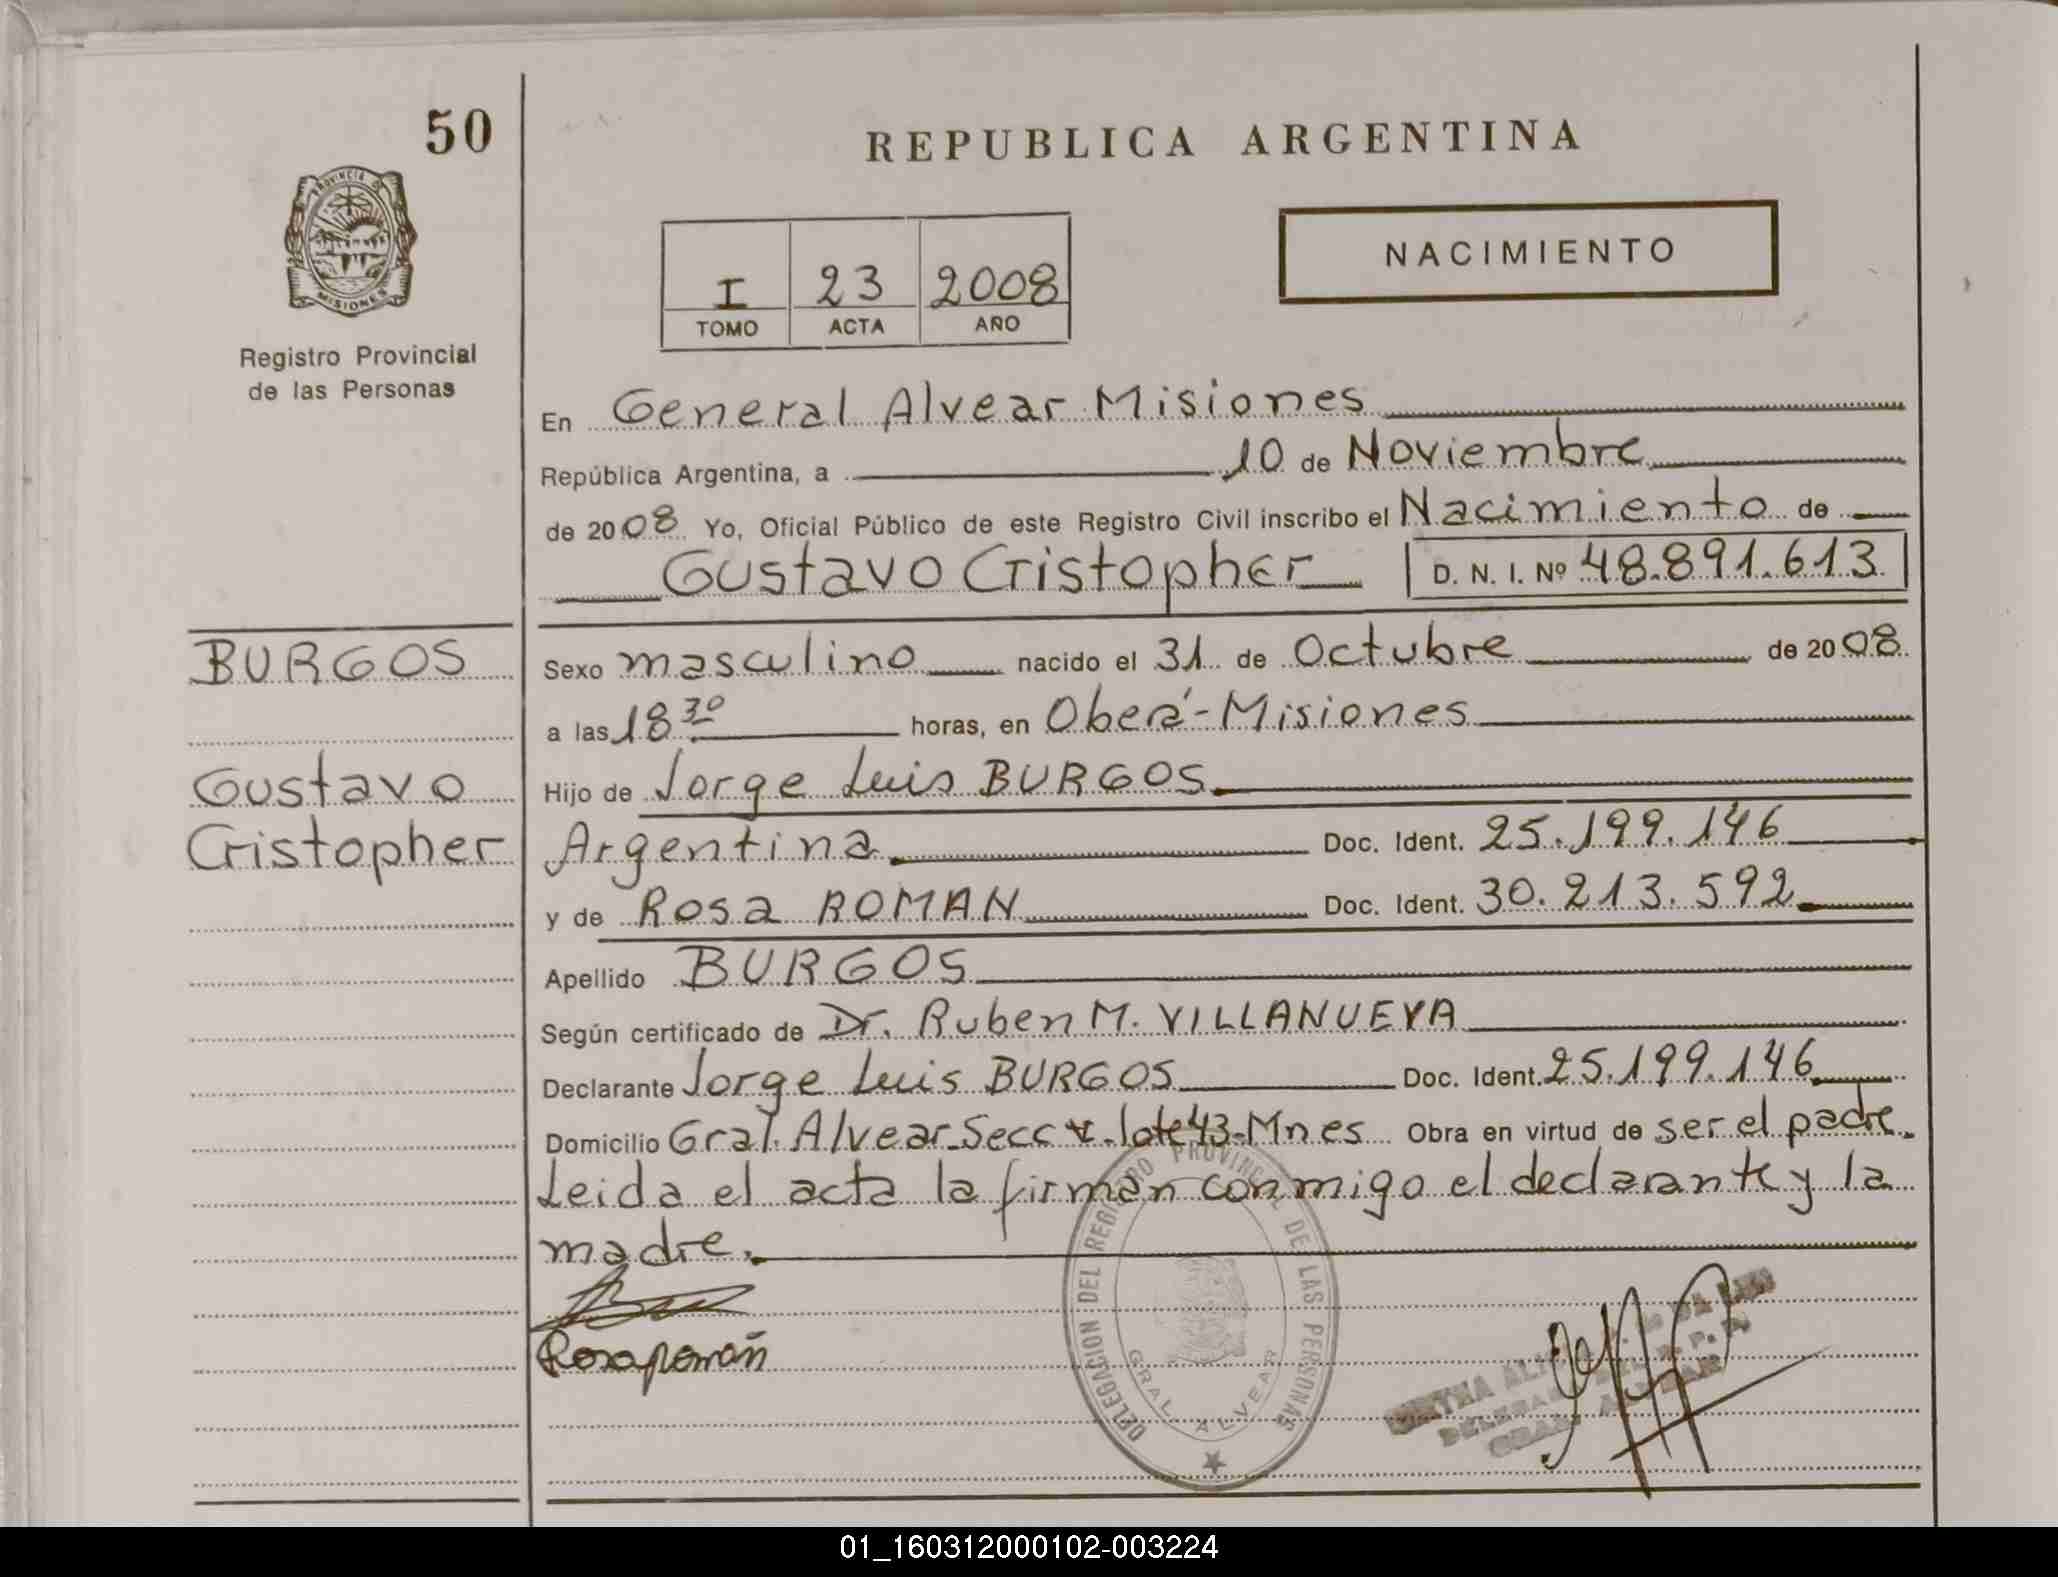 50
REPUBLICA ARGENTINA
PROVINCIA DE
MISIONES
NACIMIENTO
I 23 2008
TOMO ACTA AÑO
Registro Provincial
de las Personas
En General Alvear Misiones
República Argentina, a 10 de Noviembre
de 2008 Yo, Oficial Público de este Registro Civil inscribo el Nacimiento de
Gustavo Cristopher D. N. I. Nº 48.891.613
BURGOS
Gustavo
Cristopher
Sexo masculino nacido el 31 de Octubre de 2008
a las 18 30 horas, en Oberá-Misiones
Hijo de Jorge Luis BURGOS
Argentina Doc. Ident. 25.199.146
y de Rosa ROMAN Doc. Ident. 30.213.592
Apellido BURGOS
Según certificado de Dr. Ruben M. VILLANUEVA
Declarante Jorge Luis BURGOS Doc. Ident. 25.199.146
Domicilio Gral. Alvear Secc lote 43-Mnes Obra en virtud de ser el padre.
Leida el acta la firman conmigo el declarante y la
madre.
Rosa roman
DELEGACION DEL REGISTRO PROVINCIAL DE LAS PERSONAS
GRAL. ALVEAR
01_160312000102-003224